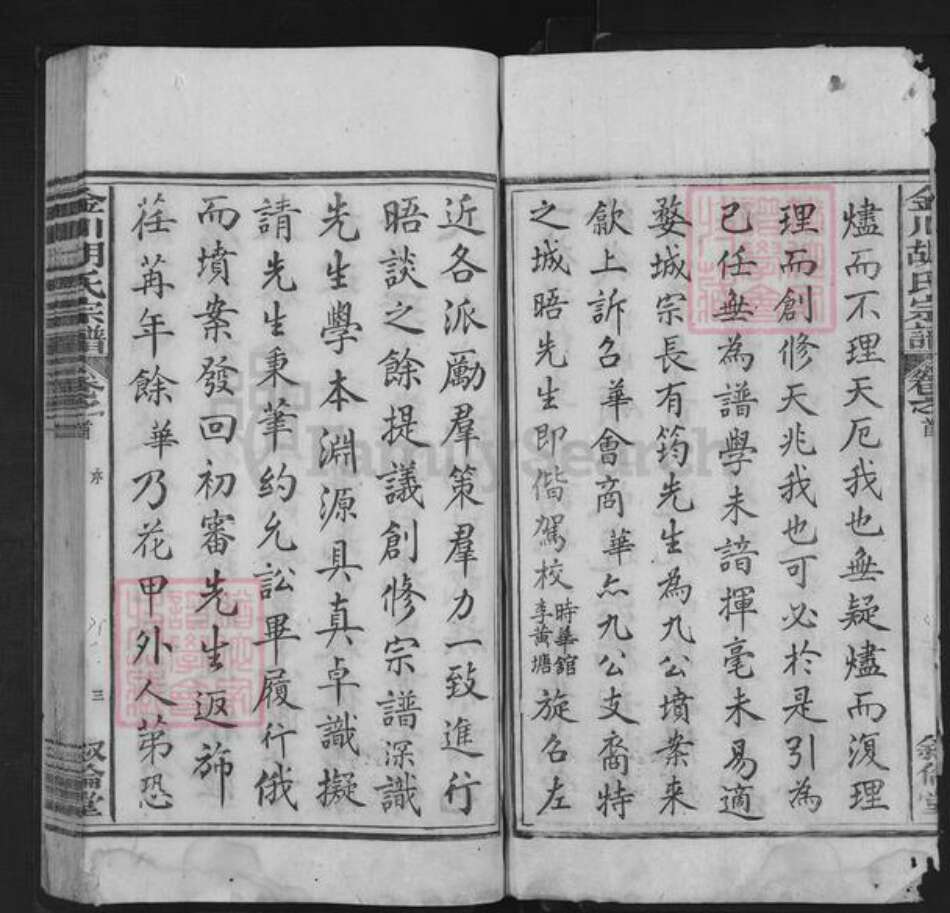 金川胡氏宗譜
卷之首
燼而不理天厄我也無疑燼而復理
理而創修天兆我也可必於是引為
己任無為譜學未諳揮毫未易適
婺城宗長有筠先生為九公墳案來
歙上訴召華會商華亦九公支裔特
之城晤先生即偕駕校時華舘李黃塘旋召左
近各派勵羣策羣力一致進行
晤談之餘提議創修宗譜深識
先生學本淵源具真卓識擬
請先生秉筆約允訟畢履行俄
而墳案發回初審先生返斾
荏苒年餘華乃花甲外人苐恐
金川胡氏宗譜
卷之首
三
叙倫堂
FamilySearch